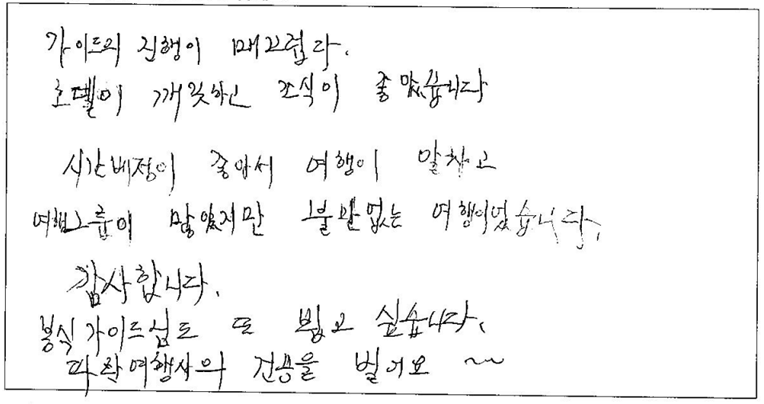 가이드의 진행이 매끄럽다.
호텔이 깨끗하고 조식이 좋았습니다
시간배정이 좋아서 여행이 알차고
여행그룹이 많았지만 불만없는 여행이었습니다.
감사합니다.
봉식 가이드님도 또 뵙고 싶습니다.
여행사의 건승을 빌어요 ~~